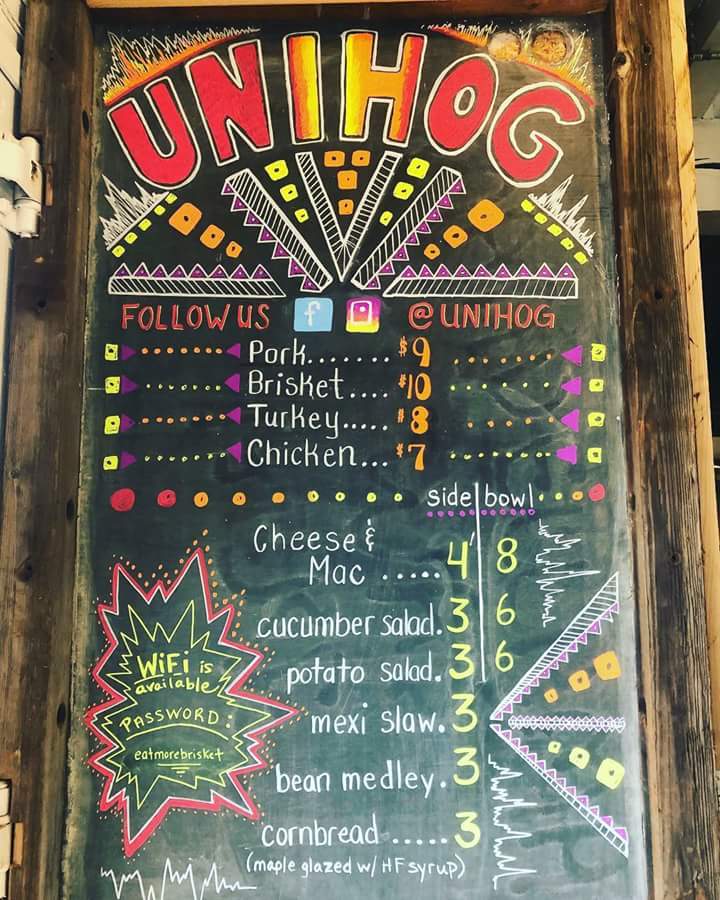 UNIHOG
FOLLOW US f @UNIHOG
Pork....... $9
Brisket.... $10
Turkey..... $8
Chicken... $7
side bowl
Cheese &
Mac ..... 4 8
cucumber salad. 3 6
potato salad. 3 6
mexi slaw. 3
bean medley. 3
cornbread ..... 3
(maple glazed w/ HF syrup)
WiFi is
available
PASSWORD:
eatmorebrisket